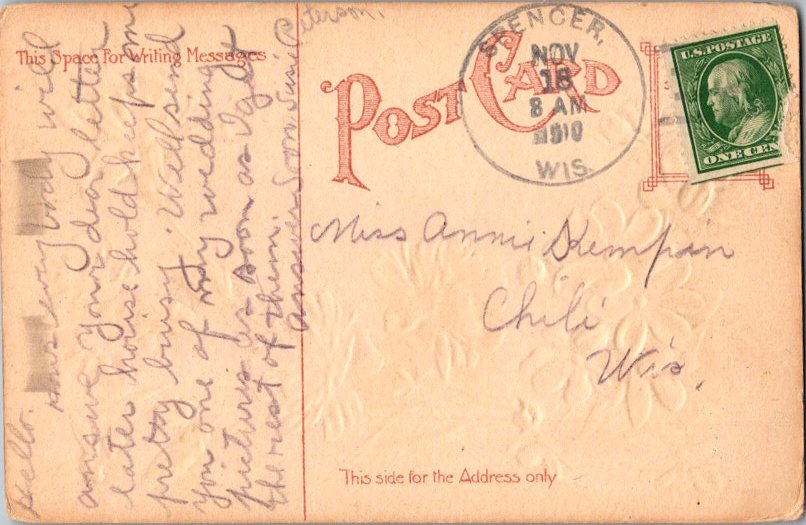 This Space For Writing Messages
Hello. hows every body will
answe your dear letter
later house hold keeps me
pretty buisy. Will send
you one of my wedding
pictures as soon as I get
the rest of them.
Answer Soon Susie Peterson.
POST CARD
SPENCER,
NOV
18
8 AM
1910
WIS.
U.S. POSTAGE
ONE CEN
Miss Annie Kempin
Chili
Wis.
This side for the Address only